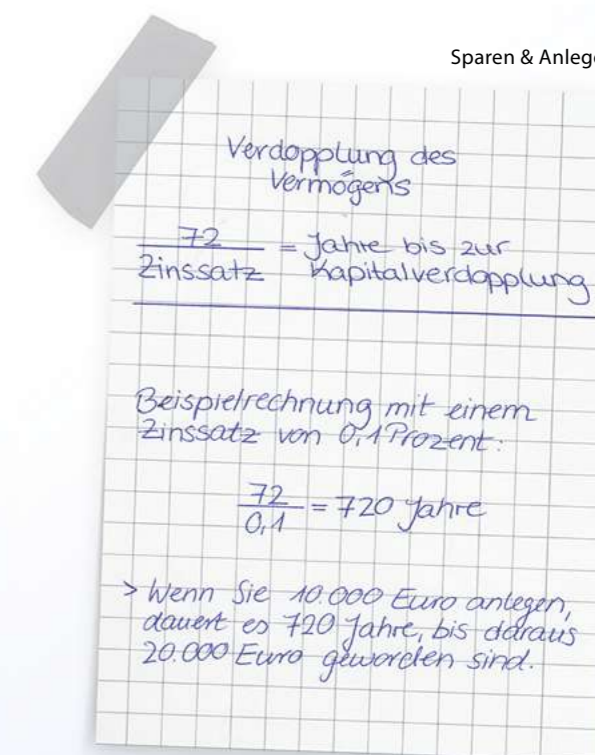 Sparen & Anlege
Verdopplung des
Vermögens
72
Zinssatz
= Jahre bis zur
Kapitalverdopplung
Beispielrechnung mit einem
Zinssatz von 0,1 Prozent:
72
0,1
= 720 Jahre
> Wenn Sie 10.000 Euro anlegen,
dauert es 720 Jahre, bis daraus
20.000 Euro geworden sind.